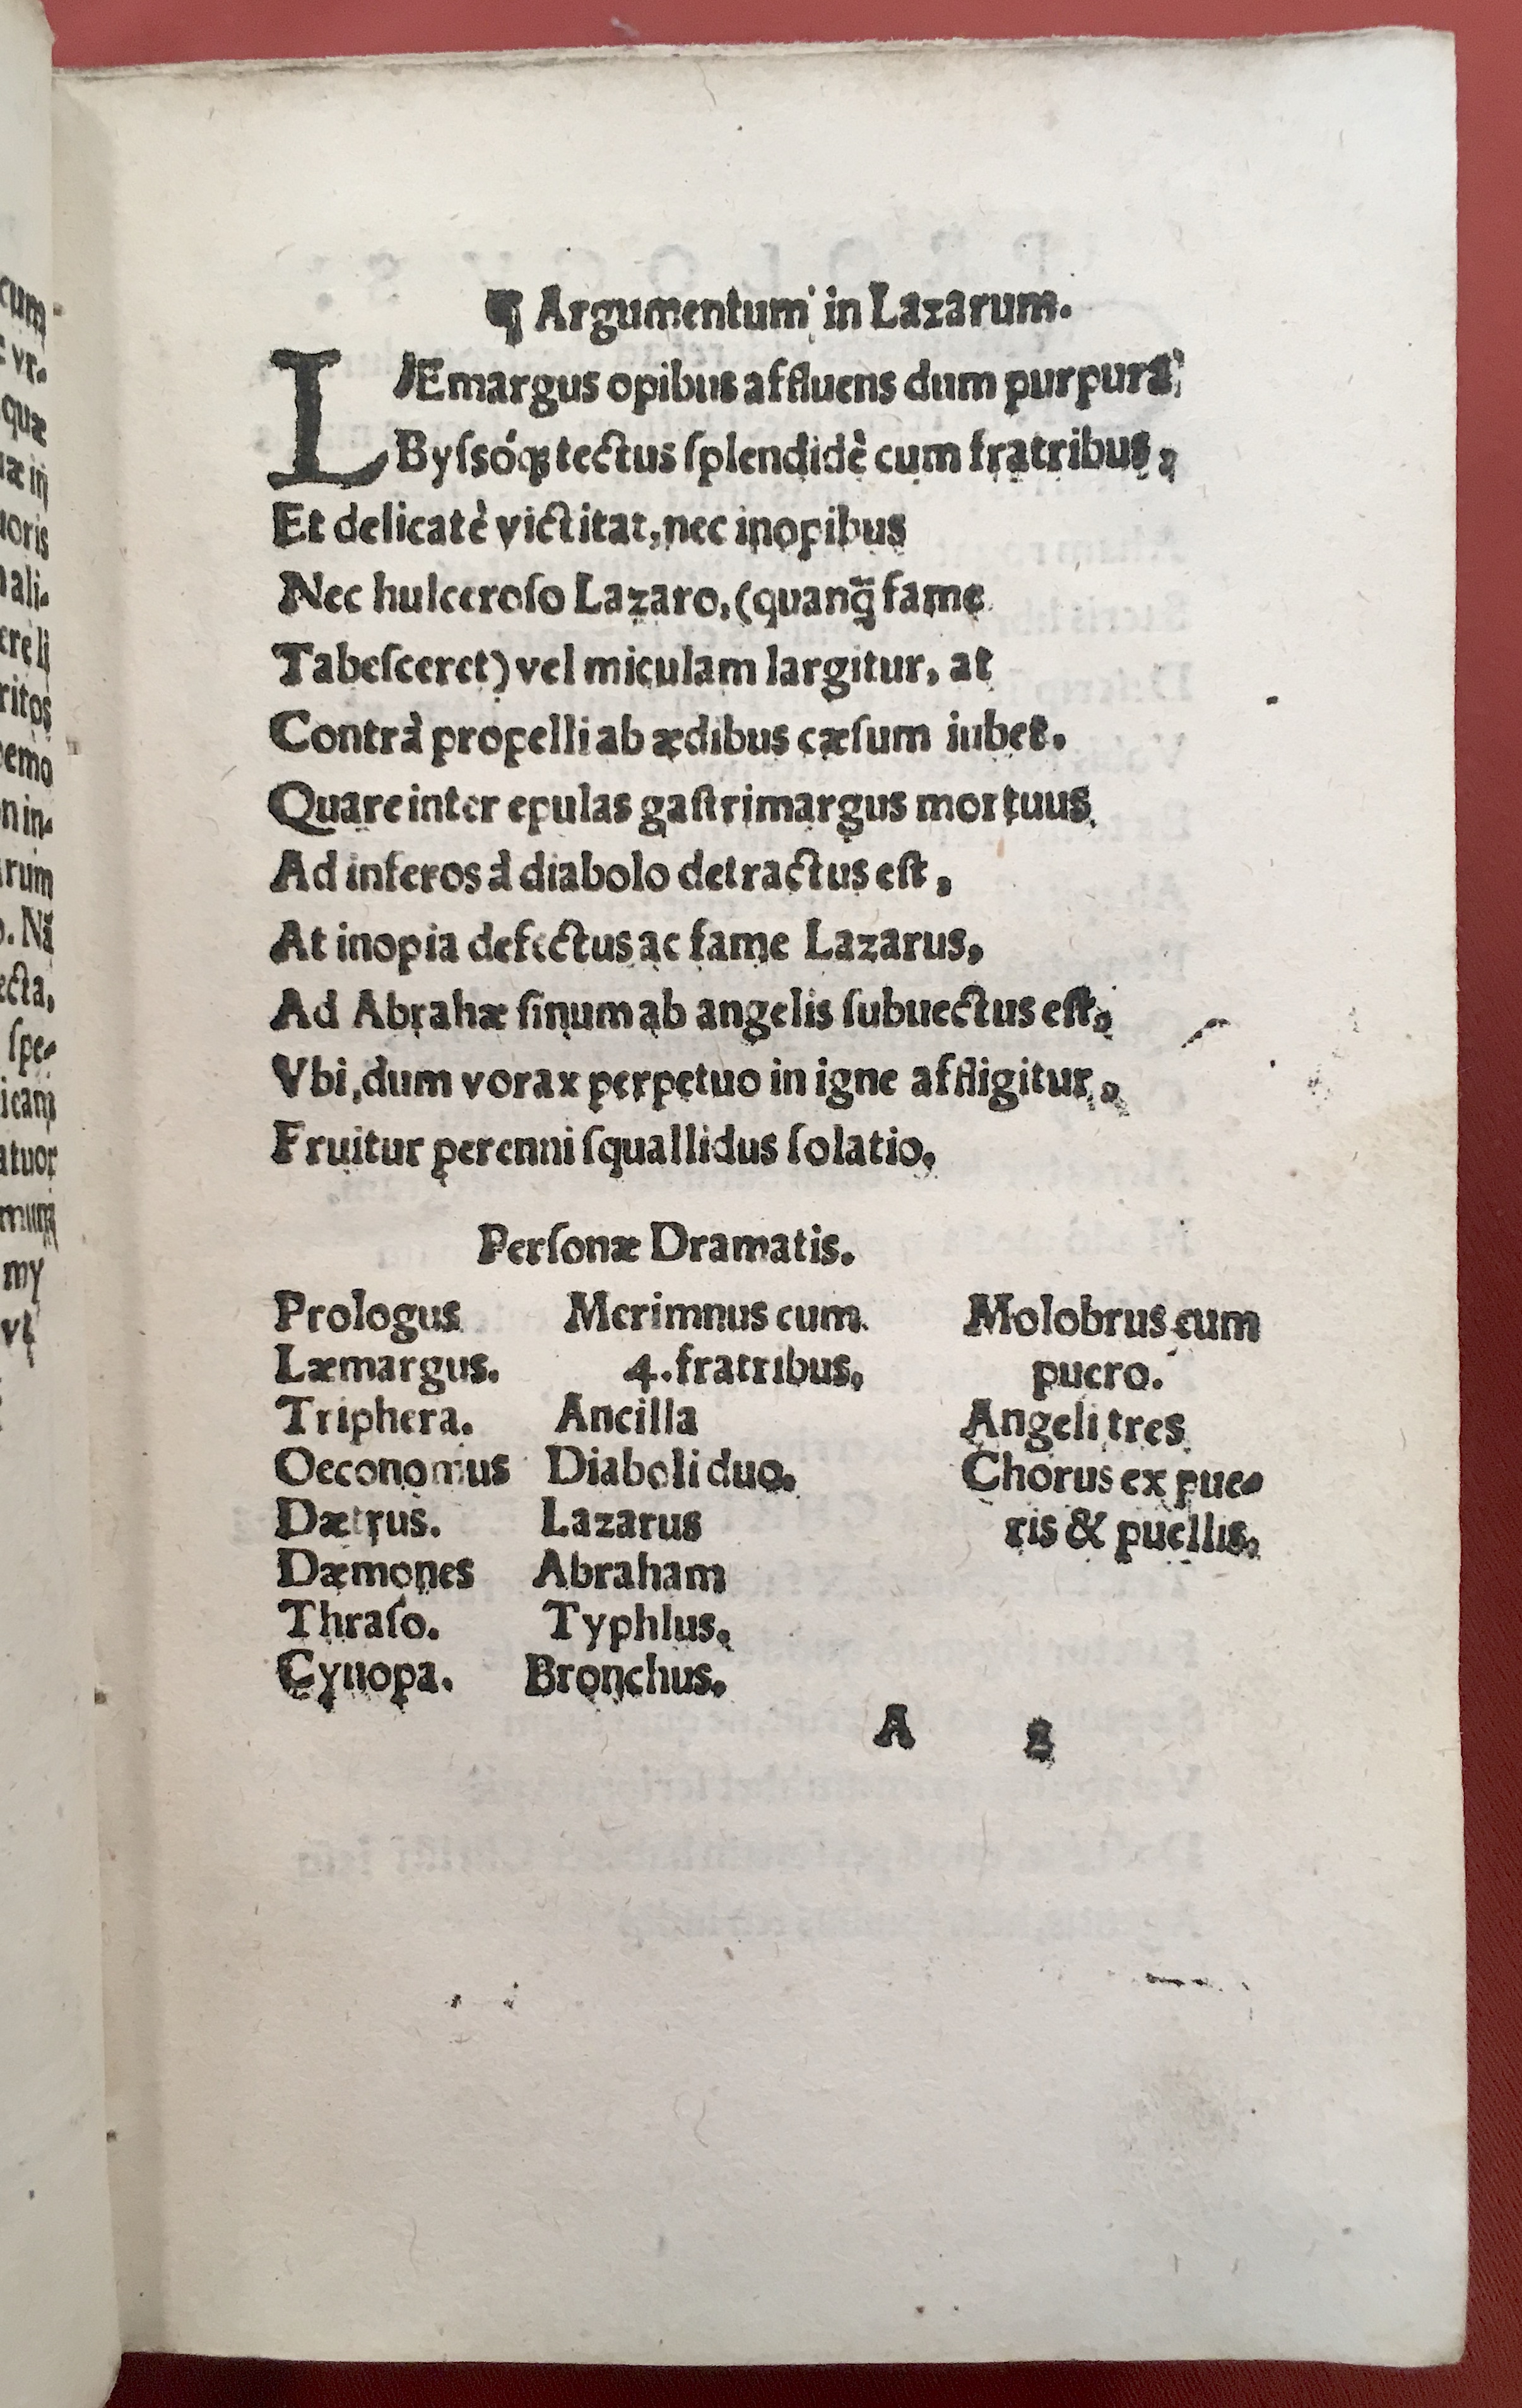 ¶ Argumentum in Lazarum.
LÆmargus opibus affluens dum purpurâ,
Byſsóq; tectus ſplendidè cum fratribus,
Et delicatè victitat, nec inopibus
Nec hulceroſo Lazaro, (quanq̃ fame
Tabeſceret) vel miculam largitur, at
Contrà propelli ab ædibus cæſum iubet.
Quare inter epulas gaſtrimargus mortuus
Ad inferos à diabolo detractus eſt,
At inopia defectus ac fame Lazarus,
Ad Abrahæ ſinum ab angelis ſubuectus eſt,
Vbi, dum vorax perpetuo in igne affligitur,
Fruitur perenni ſquallidus ſolatio.
Perſonæ Dramatis.
Prologus
Læmargus.
Triphera.
Oeconomus
Dætrus.
Dæmones
Thraſo.
Cynopa.
Merimnus cum
4. fratribus.
Ancilla
Diaboli duo.
Lazarus
Abraham
Typhlus.
Bronchus.
Molobrus cum
puero.
Angeli tres
Chorus ex pue-
ris & puellis.
A
cum
vr.
quæ
æ iij
uoris
ali-
ritos
emo
n in-
rum
. Nã
ecta,
ſpe-
icam
atuor
my